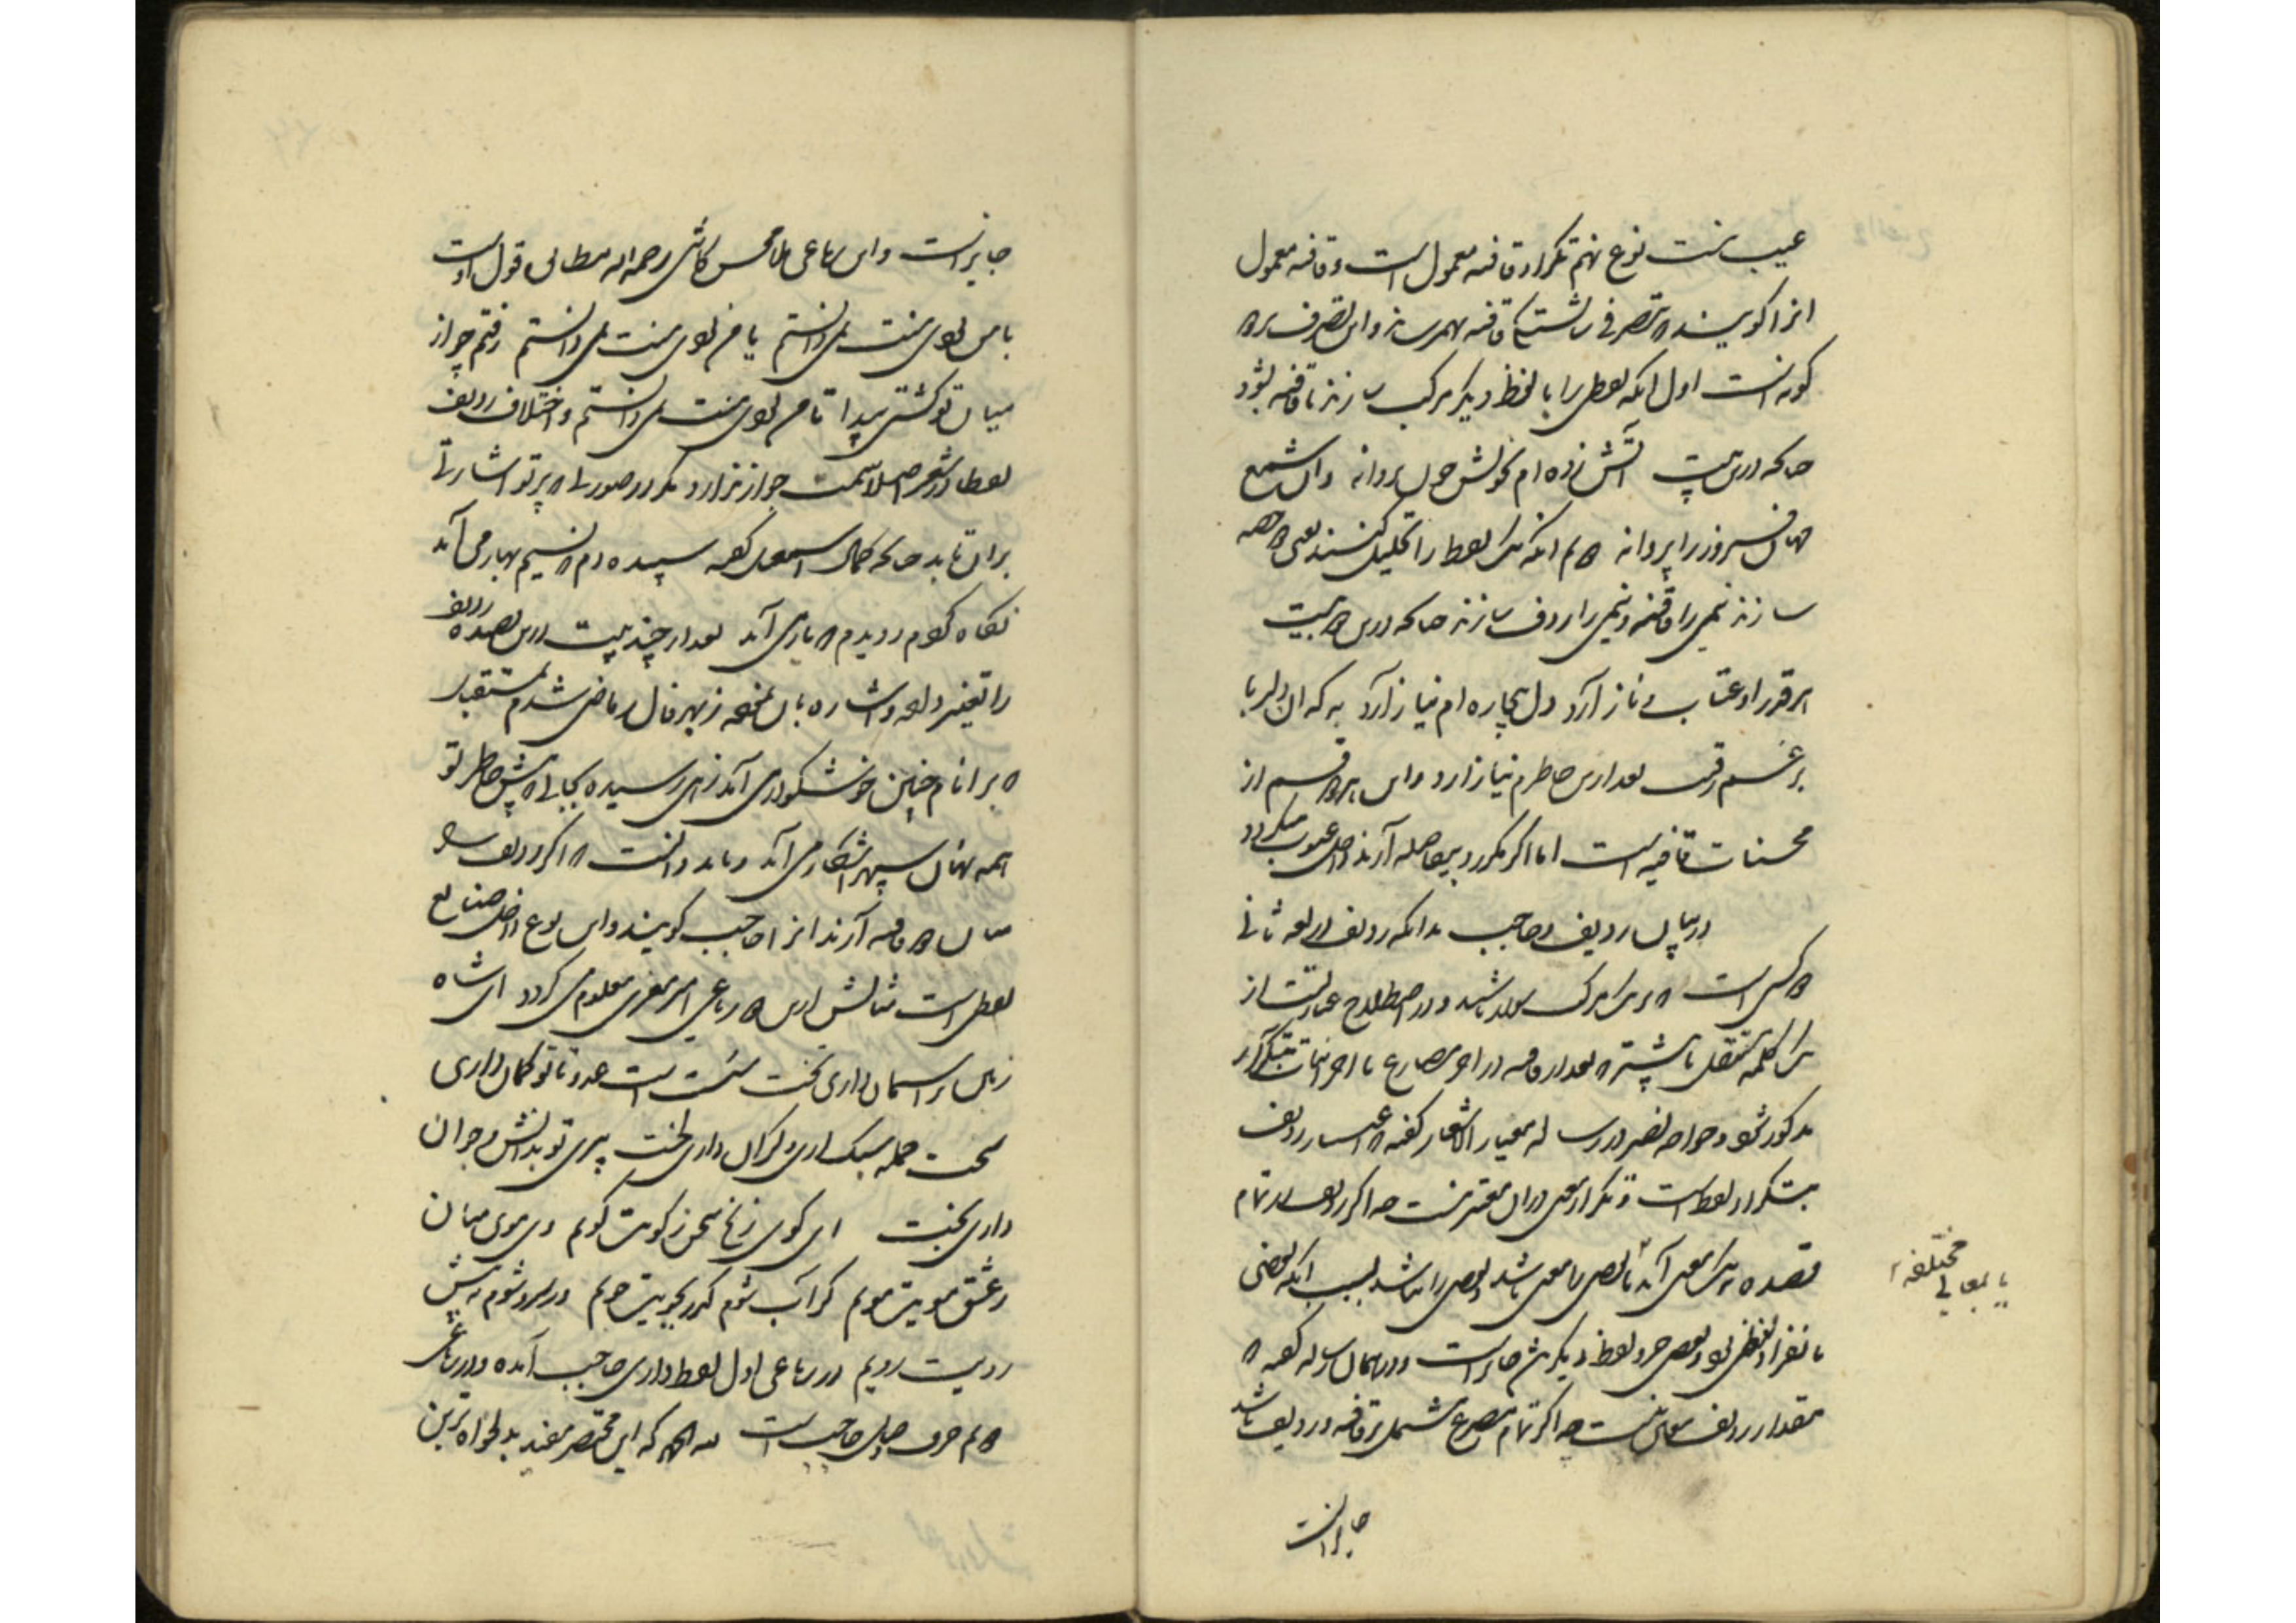 عیب نیست نوع نهم تکرار قافیه معمول است و قافیه معمول
انرا کویند که تصرفی شایسته قافیه بهم رسد و این تصرف بر دو
کونه است اول انکه لفظی را با لفظ دیکر مرکب سازند تا قافیه شود
چنانکه درین بیت آتش زده ام بخویش چون پروانه وان شمع
جهان فروز را پروانه دوم انکه یک لفظ را تحلیل کنند یعنی دو حصه
سازند نیمی را قافیه و نیمی را ردف سازند چنانکه درین دو بیت
هرقدر او عتاب و ناز آرد دل بیچاره ام نیاز آرد به که ان دلربا
برغم رقیب بعد ازین خاطرم نیازارد و این هر دو قسم از
محسنات قافیه است اما اکر مکرر و بی فاصله آرند داخل عیوب میکردد
در بیان ردیف و حاجب بدانکه ردیف در لغه ثانی
دو کس است که بر یک مرکب سوار باشند و در اصطلاح عبارتست از
یک کلمه مستقل یا بیشتر که بعد از قافیه در اواخر مصارع یا اواخر ابیات بتکرار
مذکور شود و خواجه نصیر در رساله معیار الاشعار کفته که اعتبار ردیف
بتکرار لفظ است و تکرار معنی دران معتبر نیست چه اکر ردیف در تمام
قصیده بیک معنی آید یا بعضی با معنی باشد و بعضی را نباشد بسبب انکه بعضی
یا بمعانی مختلفه
بانفراد لفظی بود و بعضی جزو لفظ دیکر باشد جایز است و در همان رساله کفته که
مقدار ردیف معین نیست چه اکر تمام مصرع مشتمل بر قافیه و ردیف باشد
جایز است
جایز است و این رباعی ملا محسن کاشی رحمه اله مطابق قول اوست
با من بودی منت نمی دانستم یا من بودی منت نمی دانستم رفتم چو از
میان تو کشتی پیدا تا من بودی منت نمی دانستم و اختلاف ردیف
لفظا در شعر اصلا سمت جواز ندارد مکر در صورتی که پرتو اشارتی
بران تابد چنانکه کمال اسمعیل کفته سپیده دم که نسیم بهار می آمد
نکاه کردم و دیدم که یار می آمد بعد از چند بیت درین قصیده ردیف
را تغییر داده و اشاره بان نموده ز بهر فال ز ماضی شدم بمستقبل
که بر انام چنین خوشکوار می آید زهی رسیده بجایی که پیش خاطر تو
همه نهان سپهر آشکار می آید و باید دانست که اکر ردیف را
میان دو قافیه آرند انرا حاجب کویند و این نوع داخل صنایع
لفظی است مثالش ازین دو رباعی امیر معزی معلوم می کردد ای شاه
زمین بر اسمان داری تخت سست است عدو تا تو کمان داری
سخت حمله سبک اری و کران داری لخت پیری تو بدانش و جوان
داری بخت ای کوی زنخ سخن ز کویت کویم وی موی میان
ز عشق مویت مویم کر آب شوم کذر بجویت جویم ور سرو شوم به پیش
رویت رویم در رباعی اول لفظ داری حاجب آمده و در رباعی
دوم حرف تا حاجب است لله الحمد که این مختصر مفید بدلخواه ترین